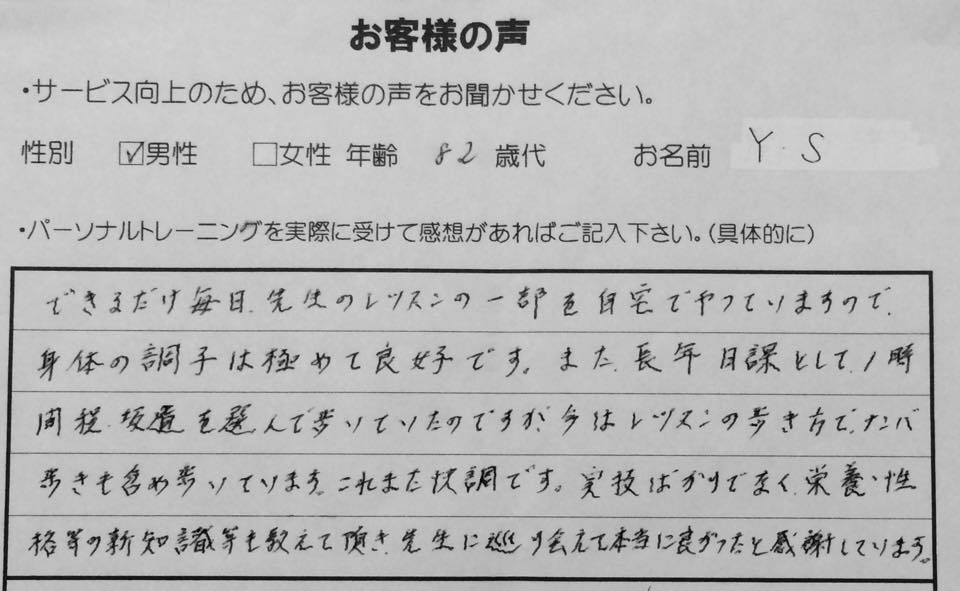 お客様の声
・サービス向上のため、お客様の声をお聞かせください。
性別 ☑男性 □女性 年齢 82 歳代 お名前 Y.S
・パーソナルトレーニングを実際に受けて感想があればご記入下さい。(具体的に)
できるだけ毎日、先生のレッスンの一部を自宅でやっていますので、
身体の調子は極めて良好です。また、長年日課として、1時
間程、坂道を選んで歩いていたのですが、今はレッスンの歩き方で、ナンバ
歩きも含め歩いています。これまた快調です。実技ばかりでなく、栄養・性
格等の新知識等も教えて頂き、先生に巡り会えて本当に良かったと感謝しています。